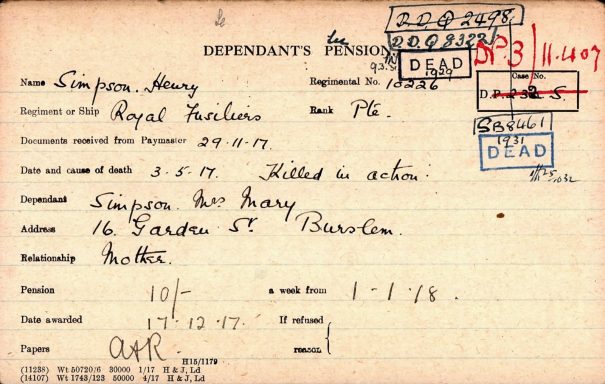 D.D.Q 2498
DEPENDANT'S PENSION.
D.D.Q 8322
DP3/11.407
DEAD
1929
Case No.
Name Simpson. Henry
Regimental No. 10226
D.P. 232 S.
Regiment or Ship Royal Fusiliers
Rank Pte.
SB8461
Documents received from Paymaster 29.11.17.
1931
DEAD
Date and cause of death 3.5.17. Killed in action.
Dependant Simpson. Mrs Mary
Address 16. Garden St. Burslem.
Relationship Mother.
Pension 10/- a week from 1-1-18.
Date awarded 17.12.17. If refused
Papers reason
H15/1179
(11238) Wt 50720/6 30000 1/17 H & J, Ld
(14107) Wt 1743/123 50000 4/17 H & J, Ld